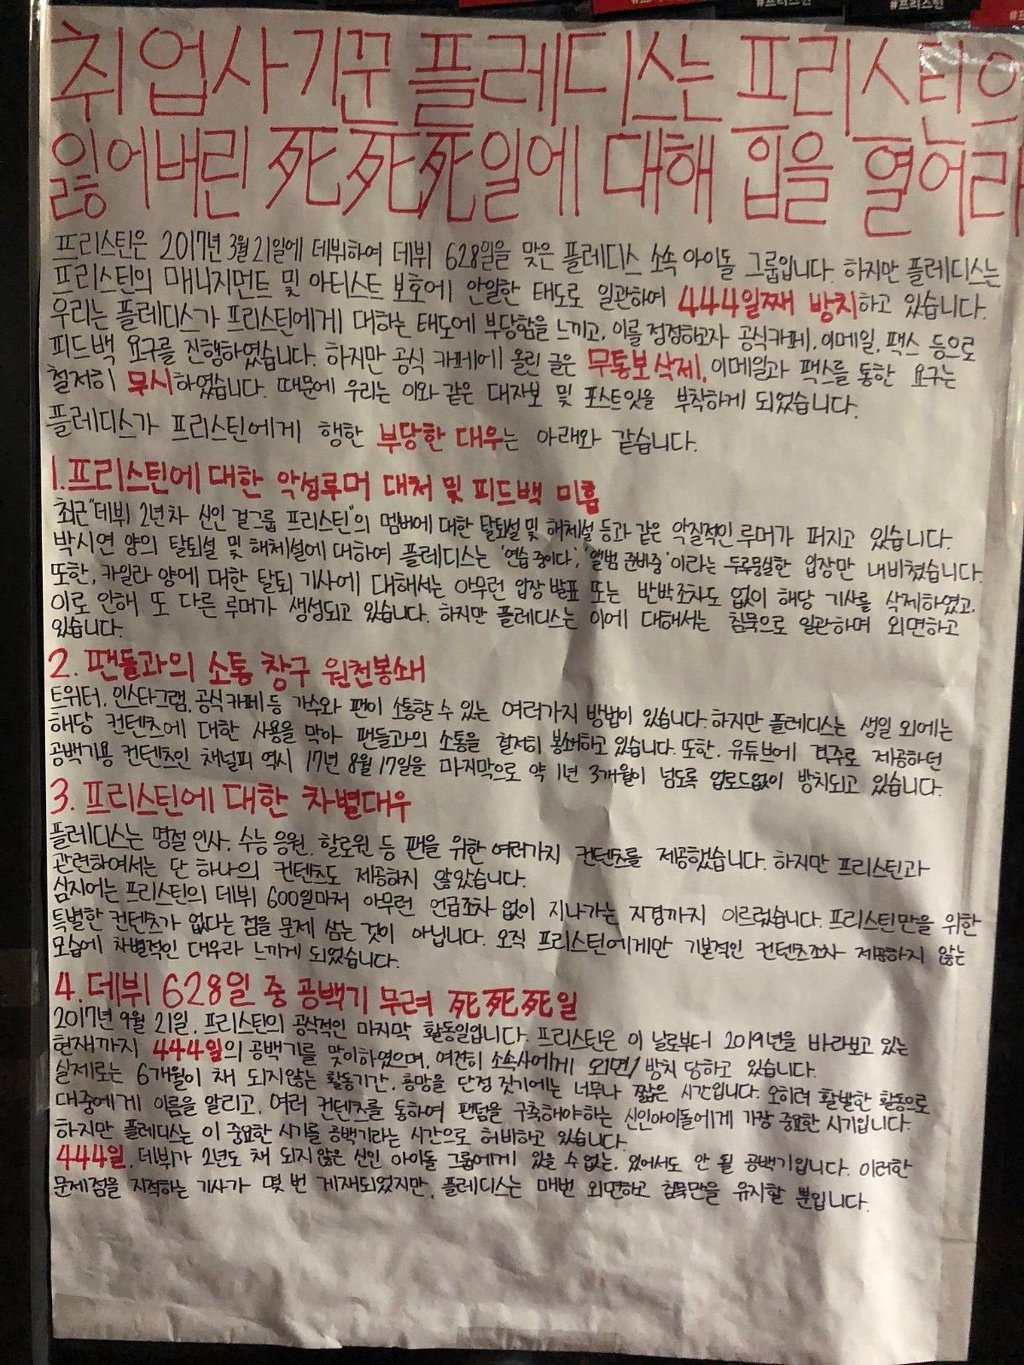 #프리스틴
#프리스틴
취업사기꾼 플레디스는 프리스틴의
잃어버린 死死死일에 대해 입을 열어라
프리스틴은 2017년 3월 21일에 데뷔하여 데뷔 628일을 맞은 플레디스 소속 아이돌 그룹입니다. 하지만 플레디스는
프리스틴의 매니지먼트 및 아티스트 보호에 안일한 태도로 일관하여 444일째 방치하고 있습니다.
우리는 플레디스가 프리스틴에게 대하는 태도에 부당함을 느끼고, 이를 정정하고자 공식카페, 이메일, 팩스 등으로
피드백 요구를 진행하였습니다. 하지만 공식 카페에 올린 글은 무통보삭제, 이메일과 팩스를 통한 요구는
철저히 무시하였습니다. 때문에 우리는 이와 같은 대자보 및 포스트잇을 부착하게 되었습니다.
플레디스가 프리스틴에게 행한 부당한 대우는 아래와 같습니다.
1. 프리스틴에 대한 악성루머 대처 및 피드백 미흡
최근 "데뷔 2년차 신인 걸그룹 프리스틴"의 멤버에 대한 탈퇴설 및 해체설 등과 같은 악질적인 루머가 퍼지고 있습니다.
박시연 양의 탈퇴설 및 해체설에 대하여 플레디스는 '연습중이다', '앨범 준비중'이라는 두루뭉실한 입장만 내비쳤습니다.
또한, 카일라 양에 대한 탈퇴 기사에 대해서는 아무런 입장 발표 또는 반박조차도 없이 해당 기사를 삭제하였고,
이로 인해 또 다른 루머가 생성되고 있습니다. 하지만 플레디스는 이에 대해서는 침묵으로 일관하며 외면하고
있습니다.
2. 팬들과의 소통 창구 원천봉쇄
트위터, 인스타그램, 공식카페 등 가수와 팬이 소통할 수 있는 여러가지 방법이 있습니다. 하지만 플레디스는 생일 외에는
해당 컨텐츠에 대한 사용을 막아 팬들과의 소통을 철저히 봉쇄하고 있습니다. 또한, 유튜브에 격주로 제공하던
공백기용 컨텐츠인 채널피 역시 17년 8월 17일을 마지막으로 약 1년 3개월이 넘도록 업로드없이 방치되고 있습니다.
3. 프리스틴에 대한 차별대우
플레디스는 명절 인사, 수능 응원, 할로윈 등 팬을 위한 여러가지 컨텐츠를 제공했습니다. 하지만 프리스틴과
관련하여서는 단 하나의 컨텐츠도 제공하지 않았습니다.
심지어는 프리스틴의 데뷔 600일마저 아무런 언급조차 없이 지나가는 지경까지 이르렀습니다. 프리스틴만을 위한
특별한 컨텐츠가 없다는 점을 문제 삼는 것이 아닙니다. 오직 프리스틴에게만 기본적인 컨텐츠조차 제공하지 않는
모습에 차별적인 대우라 느끼게 되었습니다.
4. 데뷔 628일 중 공백기 무려 死死死일
2017년 9월 21일, 프리스틴의 공식적인 마지막 활동일입니다. 프리스틴은 이 날로부터 2019년을 바라보고 있는
현재까지 444일의 공백기를 맞이하였으며, 여전히 소속사에게 외면/방치 당하고 있습니다.
실제로는 6개월이 채 되지않는 활동기간, 흥망을 단정 짓기에는 너무나 짧은 시간입니다. 오히려 활발한 활동으로
대중에게 이름을 알리고, 여러 컨텐츠를 통하여 팬덤을 구축해야하는 신인아이돌에게 가장 중요한 시기입니다.
하지만 플레디스는 이 중요한 시기를 공백기라는 시간으로 허비하고 있습니다.
444일, 데뷔가 2년도 채 되지않은 신인 아이돌 그룹에게 있을 수 없는, 있어서도 안 될 공백기입니다. 이러한
문제점을 지적하는 기사가 몇 번 게재되었지만, 플레디스는 매번 외면하고 침묵만을 유지할 뿐입니다.